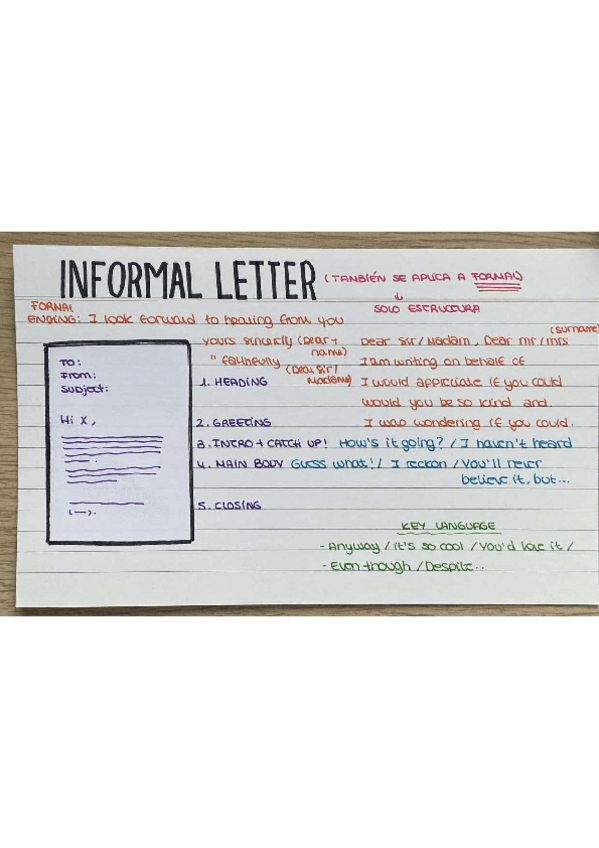 INFORMAL LETTER (TANBIÉN SE APLICA A FORMAL)
SOLO ESTRUCTURA
FORMAL
ENDING: I look forward to hearing from you
(surname)
yours sincerly (Dear + name)
Dear Sir/Madam, Dear mr/mrs
" faithfully (Dear Sir/ Madame)
I am writing on behalf of
TO:
From:
Subject:
Hi X,
(~).
1. HEADING
I would appriciate if you could
would you be so kind and.
2. GREETING
I was wondering if you could.
3. INTRO + CATCH UP! How's it going? / I haven't heard
4. MAIN BODY Guess what! / I reckon / You'll never
believe it, but...
5. CLOSING
KEY LANGUAGE
- Anyway / it's so cool / You'd love it /
- Even though / Despite..